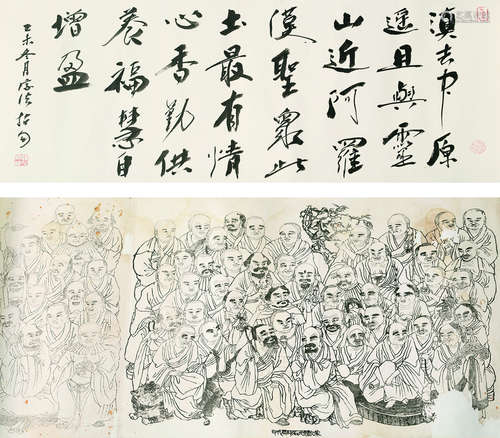 滇去中原
遥且與靈
山近阿羅
漢聖衆此
土最有情
心香勤供
養福慧自
增盈
乙未冬月